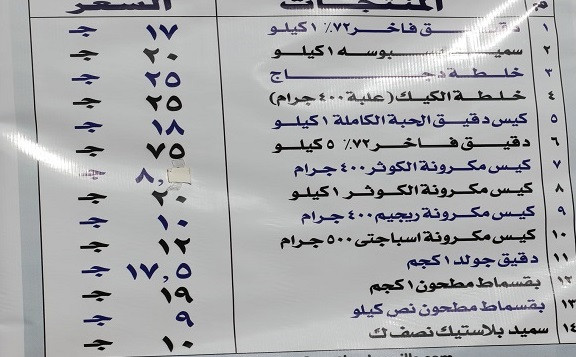 م المنتجات السعر
١ دقيق فاخر ٧٢٪ ١ كيلو ١٧ جـ
٢ سميد بسبوسه ١ كيلو ٢٠ جـ
٣ خلطة دجاج ٢٥ جـ
٤ خلطة الكيك (علبة ٤٠٠ جرام) ٢٥ جـ
٥ كيس دقيق الحبة الكاملة ١ كيلو ١٨ جـ
٦ دقيق فاخر ٧٢٪ ٥ كيلو ٧٥ جـ
٧ كيس مكرونة الكوثر ٤٠٠ جرام ٨, جـ
٨ كيس مكرونة الكوثر ١ كيلو ٢٠ جـ
٩ كيس مكرونة ريجيم ٤٠٠ جرام ١٠ جـ
١٠ كيس مكرونة اسباجتى ٥٠٠ جرام ١٢ جـ
١١ دقيق جولد ١ كجم ١٧,٥ جـ
١٢ بقسماط مطحون ١ كجم ١٩ جـ
١٣ بقسماط مطحون نص كيلو ٩ جـ
١٤ سميد بلاستيك نصف ك ١٠ جـ